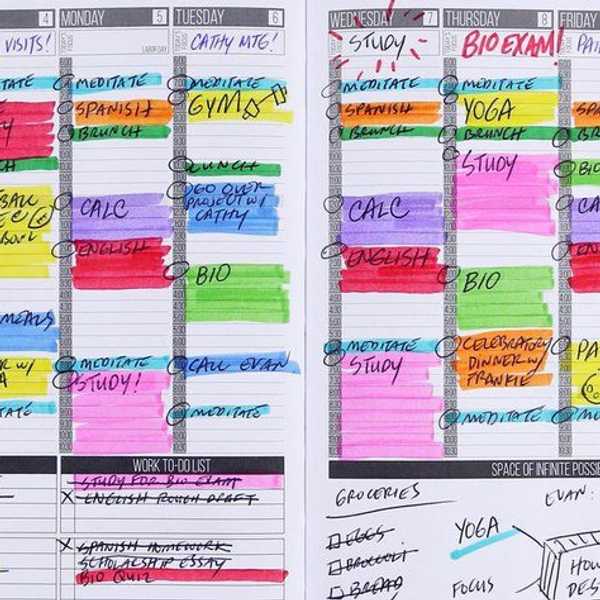 4
VISITS!
MEALS
MONDAY 5
TODAY'S FOCUS
LABOR DAY
MEDITATE
SPANISH
BRUNCH
CALC
ENGLISH
MEDITATE
STUDY!
TUESDAY 6
TODAY'S FOCUS
CATHY MTG!
MEDITATE
GYM
LUNCH
GO OVER
PROJECT W/
CATHY
BIO
CALL EVAN
MEDITATE
WORK TO-DO LIST
STUDY FOR BIO EXAM
X ENGLISH ROUGH DRAFT
X SPANISH HOMEWORK
SCHOLARSHIP ESSAY
BIO QUIZ
WEDNESDAY 7
TODAY'S FOCUS
STUDY
MEDITATE
SPANISH
BRUNCH
CALC
ENGLISH
MEDITATE
STUDY
THURSDAY 8
TODAY'S FOCUS
BIO EXAM!
MEDITATE
YOGA
BRUNCH
STUDY
BIO
CELEBRATORY
DINNER W/
FRANKIE
MEDITATE
FRIDAY
SPACE OF INFINITE
GROCERIES
EGGS
BROCCOLI
BREAD
YOGA
FOCUS
EVAN: